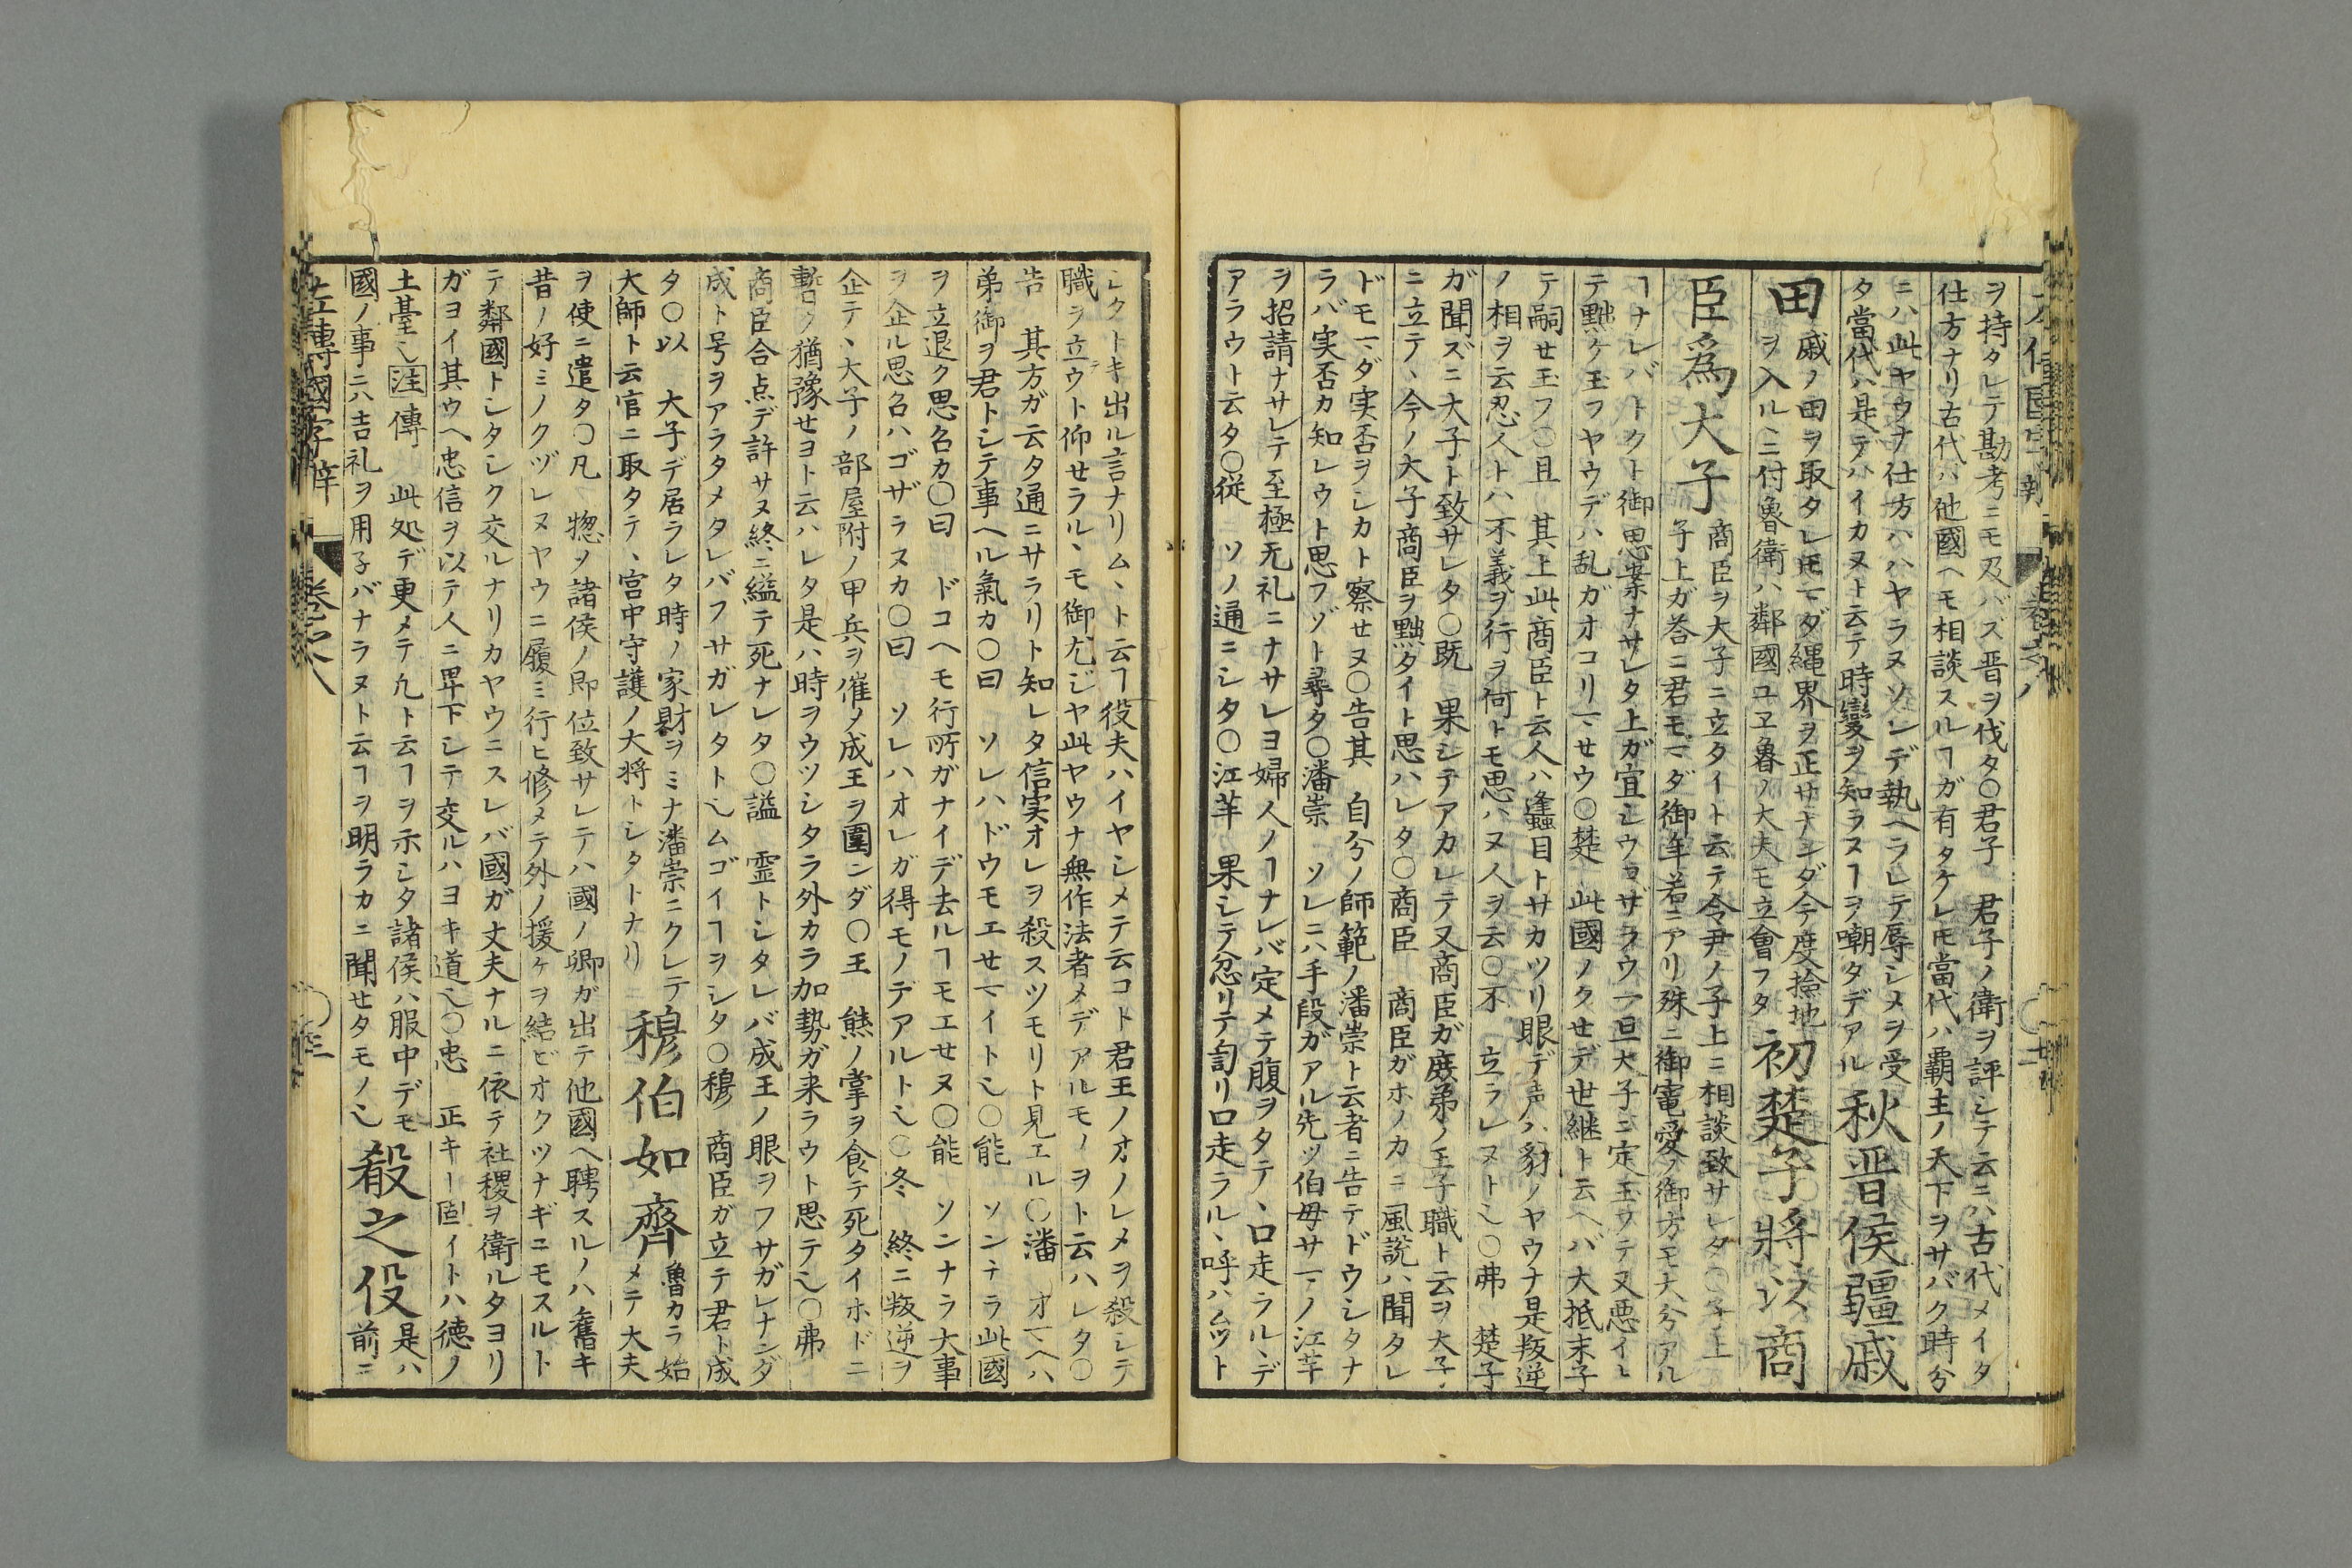 ヲ持タレテ勘考ニモ及バズ晋ヲ伐タ〇君子　君子ノ衛ヲ評シテ云ニハ古代メイタ
仕方ナリ古代ハ他國ヘモ相談スルヿガ有タケレ𪜈當代ハ覇主ノ天下ヲサバク時分
ニハ此ヤウナ仕方ハハヤラヌソンデ執ヘラレテ辱シメヲ受
タ當代ハ是デハイカヌト云テ時變ヲ知ラヌヿヲ嘲タデアル
秋晋侯疆戚
田
戚ノ田ヲ取タレ𪜈マダ縄界ヲ正サナンダ今度撿地
ヲ入ルヽニ付魯衛ハ鄰國ユヱ魯ノ大夫モ立會フタ
初楚子將以商
臣為大子
商臣ヲ大子ニ立タイト云テ令尹ノ子上ニ相談致サレタ〇子上
子上ガ荅ニ君モマダ御年若ニアリ殊ニ御寵愛ノ御方モ大分アル
ヿナレバトクト御思案ナサレタ上ガ宜シウゴザラウ一旦大子ニ定玉ヲテ又惡イト
テ黜ケ玉フヤウデハ乱ガオコリマセウ〇楚　此國ノクセデ世継ト云ヘバ大抵末子
テ嗣セ玉フ〇且　其上此商臣ト云人ハ蠭目トサカツリ眼デ声ハ豺ノヤウナ是叛逆
ノ相ヲ云忍人トハ不義ヲ行ヲ何トモ思ハヌ人ヲ云〇不　立ラレヌト也〇弗　楚子
ガ聞ズニ大子ト致サレタ〇既　果シテアカレテ又商臣ガ庻弟ノ王子職ト云ヲ大子
ニ立テヽ今ノ大子商臣ヲ黜タイト思ハレタ〇商臣　商臣ガホノカニ風説ハ聞タレ
ドモマダ実否ヲシカト察セヌ〇告其　自分ノ師範ノ潘崇ト云者ニ告テドウシタナ
ラバ実否カ知レウト思フゾト尋タ〇潘崇　ソレニハ手段ガアル先ツ伯母サマノ江羋
ヲ招請ナサレテ至極无礼ニナサレヨ婦人ノヿナレバ定メテ腹ヲタテヽ口走ラルヽデ
アラウト云タ〇従　ソノ通ニシタ〇江羋　果シテ忿リテ訇リ口走ラルヽ呼ハムツト
シタトキ出ル言ナリムヽト云ヿ役夫ハイヤシメテ云コト君王ノオノレメヲ殺シテ
職ヲ立ウト仰セラルヽモ御尤ジヤ此ヤウナ無作法者メデアルモノヲト云ハレタ〇
告　其方ガ云タ通ニサラリト知レタ信実オレヲ殺スツモリト見エル〇潘　オマヘハ
弟御ヲ君トシテ事ヘル氣カ〇曰　ソレハドウモエセマイト也〇能　ソンナラ此國
ヲ立退ク思召カ〇曰　ドコヘモ行所ガナイデ去ルヿモエセヌ〇能　ソンナラ大事
ヲ企ル思召ハゴザラヌカ〇曰　ソレハオレガ得モノデアルト也〇冬　終ニ叛逆ヲ
企テヽ大子ノ部屋附ノ甲兵ヲ催メ成王ヲ圍ンダ〇王　熊ノ掌ヲ食テ死タイホドニ
暫ク猶豫セヨト云ハレタ是ハ時ヲウツシタラ外カラ加勢ガ来ラウト思テ也〇弗
商臣合点デ許サヌ終ニ縊テ死ナレタ〇謚　霊トシタレバ成王ノ眼ヲフサガレナンダ
成ト号ヲアラタメタレバフサガレタト也ムゴイヿヲシタ〇穆　商臣ガ立テ君ト成
タ〇以　大子デ居ラレタ時ノ家財ヲミナ潘崇ニクレテ
大師ト云官ニ取タテヽ宮中守護ノ大将トシタトナリ
穆伯如齊
魯カラ始
メテ大夫
ヲ使ニ遣タ〇凡　惣ノ諸侯ノ即位致サレテハ國ノ卿ガ出テ他國ヘ聘スルノハ舊キ
昔ノ好ミノクヅレヌヤウニ履ミ行ヒ修メテ外ノ援ケヲ結ビオクツナギニモスルト
テ鄰國トシタシク交ルナリカヤウニスレバ國ガ丈夫ナルニ依テ社稷ヲ衛ルタヨリ
ガヨイ其ウヘ忠信ヲ以テ人ニ卑下シテ交ルハヨキ道也〇忠　正キ一固イトハ徳ノ
土臺也注傳　此処デ更メテ凢ト云ヿヲ示シタ諸侯ハ服中デモ
國ノ事ニハ吉礼ヲ用子バナラヌト云ヿヲ明ラカニ聞セタモノ也
殽之役
是ハ
前ニ
左傳國字辯　巻之八